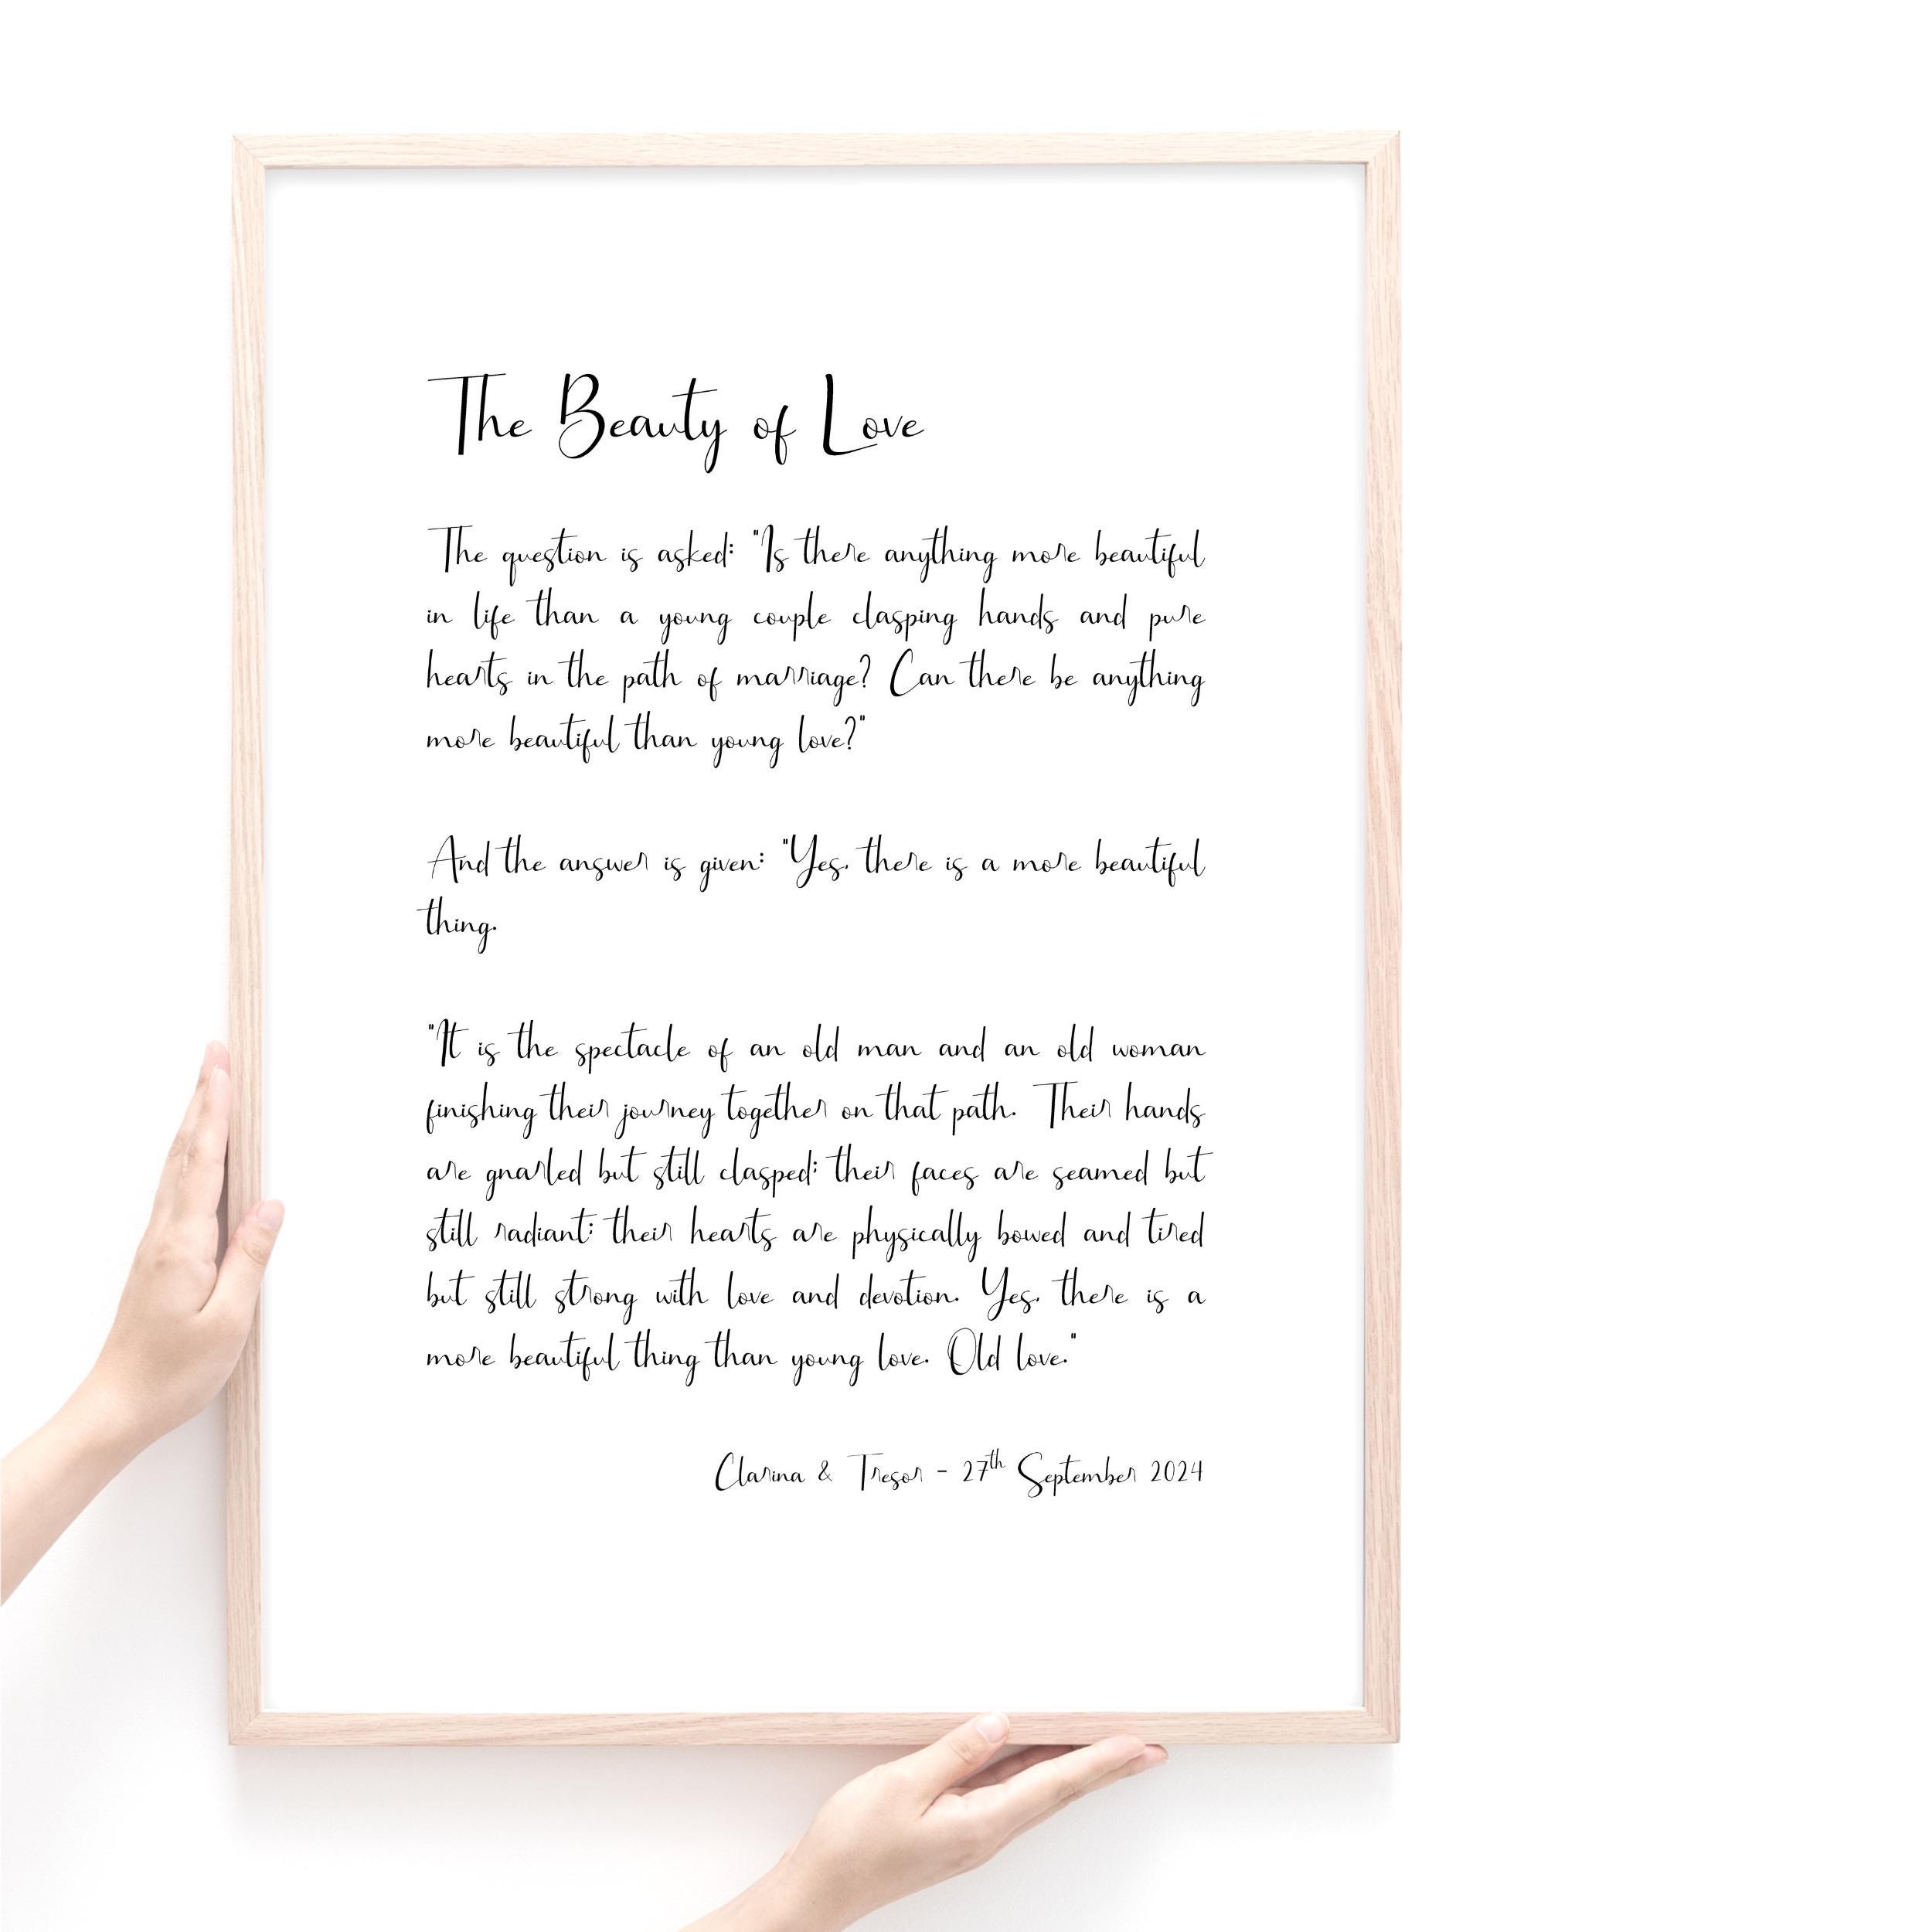 The Beauty of Love
The question is asked: "Is there anything more beautiful
in life than a young couple clasping hands and pure
hearts in the path of marriage? Can there be anything
more beautiful than young love?"
And the answer is given: "Yes, there is a more beautiful
thing.
"It is the spectacle of an old man and an old woman
finishing their journey together on that path. Their hands
are gnarled but still clasped; their faces are seamed but
still radiant; their hearts are physically bowed and tired
but still strong with love and devotion. Yes, there is a
more beautiful thing than young love. Old love."
Clarina & Tresor - 27th September 2024